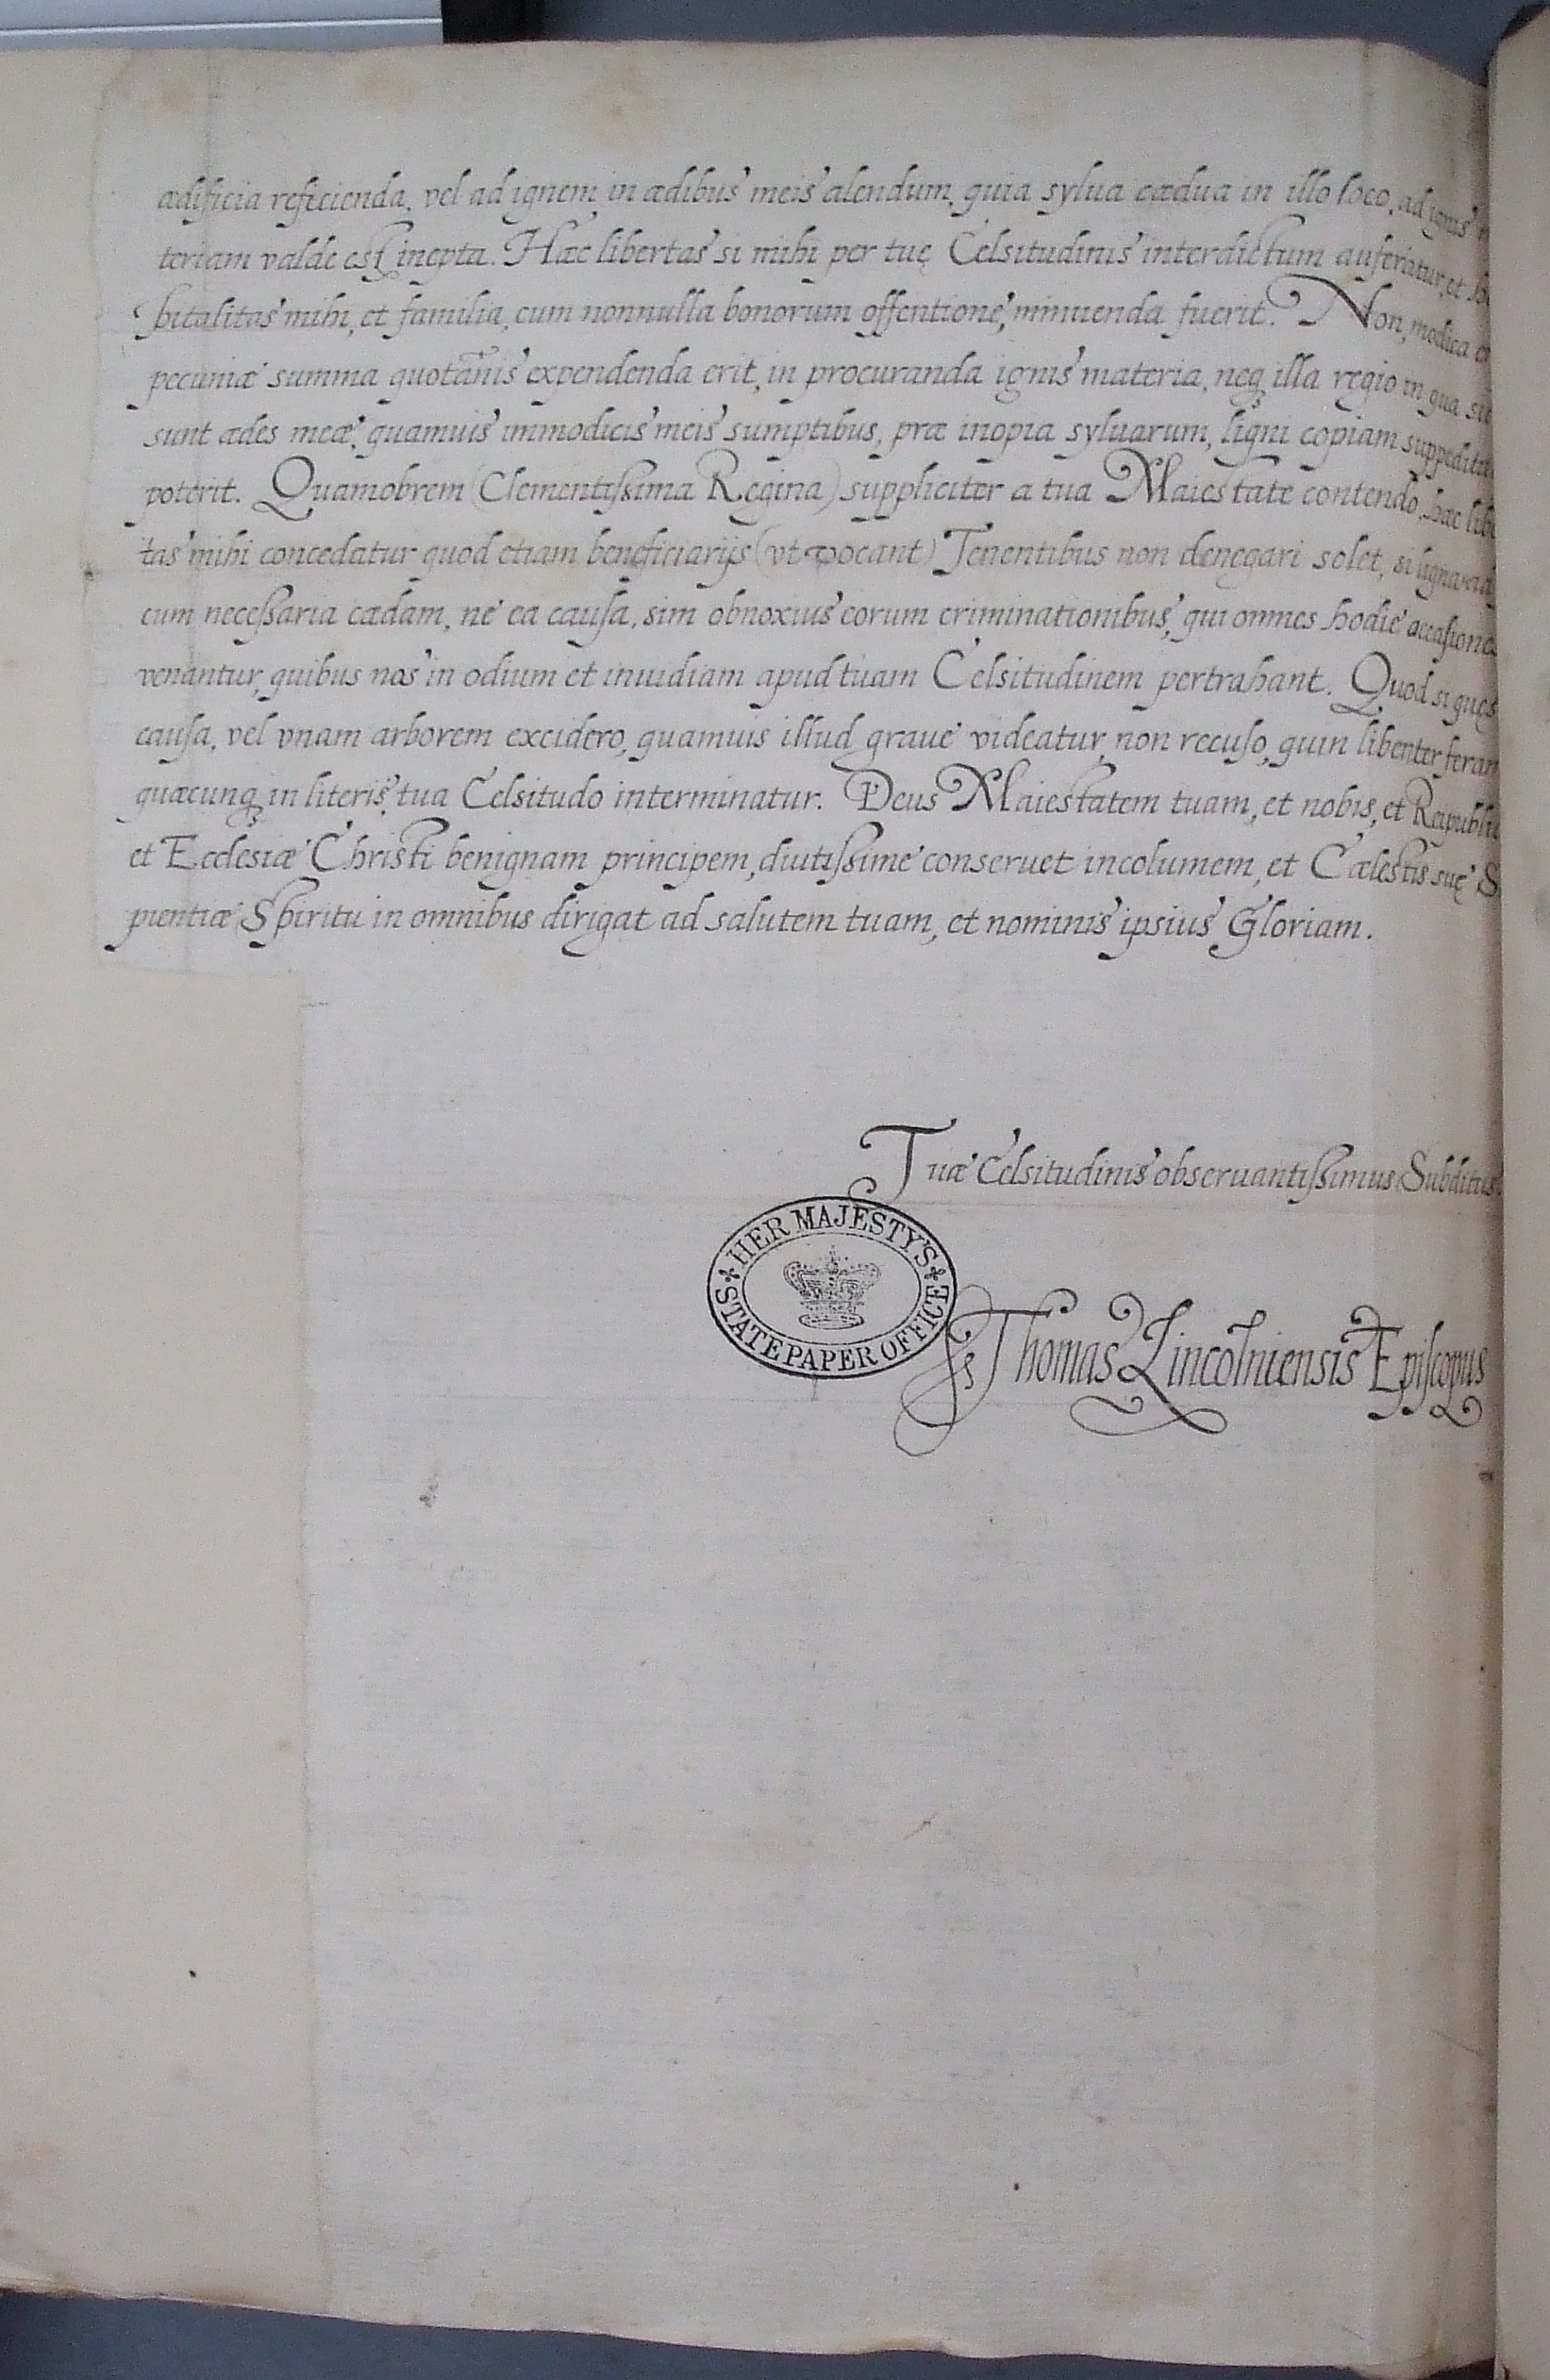 ædificia reficienda, vel ad ignem in ædibus meis alendum, quia sylua cædua in illo loco, ad ignis
teriam valde est inepta. Hæc libertas si mihi per tuę Celsitudinis interdictum auferiatur, et
pitalitas mihi, et familia, cum nonnulla bonorum offentione, minuenda fuerit. Non, modica
pecuniæ summa quotānis expendenda erit, in procuranda ignis materia, neq illa regio in qua
sunt ædes meæ, quamuis immodicis meis sumptibus, præ inopia syluarum, ligni copiam suppedita
poterit. Quamobrem (Clementissima Regina) suppliciter a tua Maiestate contendo, hæc lib
tas mihi concedatur quod etiam beneficiarijs (vt vocant) Tenentibus non denegari solet, si ligna
cum necessaria cædam, nè ea causa, sim obnoxius eorum criminationibus, qui omnes hodiè occasione
venantur, quibus nos in odium et inuidiam apud tuam Celsitudinem pertrahant. Quod si
causa, vel vnam arborem excidero, quamuis illud grauè videatur, non recuso, quin libenter feram
quæcunq in literis tua Celsitudo interminatur. Deus Maiestatem tuam, et nobis, et Reipubli
et Ecclesiæ Christi benignam principem, diutissimè conseruet incolumem, et Cælestis suę S
pientiæ Spiritu in omnibus dirigat ad salutem tuam, et nominis ipsius Gloriam.
Tuæ Celsitudinis obseruantissimus Subditus
HER MAJESTY'S
STATE PAPER OFFICE
Thomas Lincolniensis Episcopus